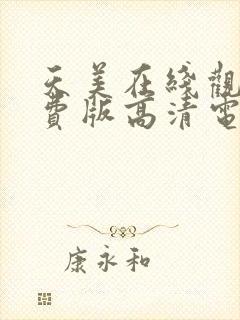 天美在线觀
費版高清電
康永和